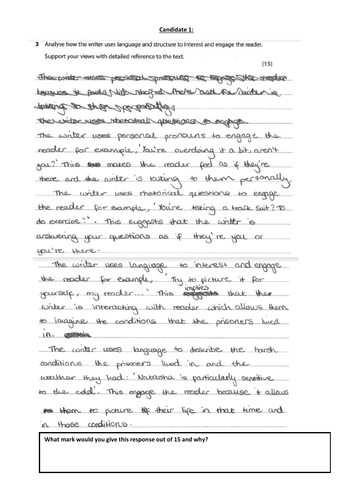 Candidate 1:
3 Analyse how the writer uses language and structure to interest and engage the reader.
Support your views with detailed reference to the text.
(15)
The writer uses personal pronouns to engage the reader
because it feels like they're there and the writer is
talking to them personally.
The writer uses rhetorical questions to engage
The writer uses personal pronouns to engage the
reader for example, 'You're overdoing it a bit, aren't
you?' This makes the reader feel as if they're
there and the writer is talking to them personally.
The writer uses rhetorical questions to engage
the reader for example, 'You're taking a track suit? To
do exercise?'. This suggests that the writer is
answering your questions as if they're you or
you're there.
The writer uses language to interest and engage
the reader for example, 'Try to picture it for
yourself, my reader...' This implies that the
writer is interacting with reader which allows them
to imagine the conditions that the prisoners lived
in.
The writer uses language to describe the harsh
conditions the prisoners lived in and the
weather they had: 'Natasha is particularly sensitive
to the cold'. This engage the reader because it allows
them to picture their life in that time and
in those conditions.
What mark would you give this response out of 15 and why?